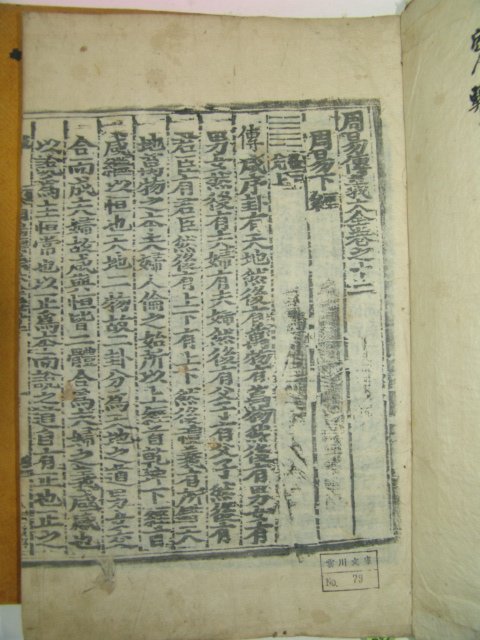 周易傳義大全卷之十二
周易下經
兌上
傳咸序卦有天地然後有萬物有萬物然後有男女有
男女然後有夫婦有夫婦然後有父子有父子然後有
君臣有君臣然後有上下有上下然後禮義有所錯天
地萬物之本夫婦人倫之始所以上經首乾坤下經首
咸繼以恒也天地二物故二卦分爲天地之道男女交
合而成夫婦故咸與恒皆二體合爲夫婦之義咸感也
以說爲主恒常也以正爲本而說之道自有正也正之
雲川文庫
No. 73